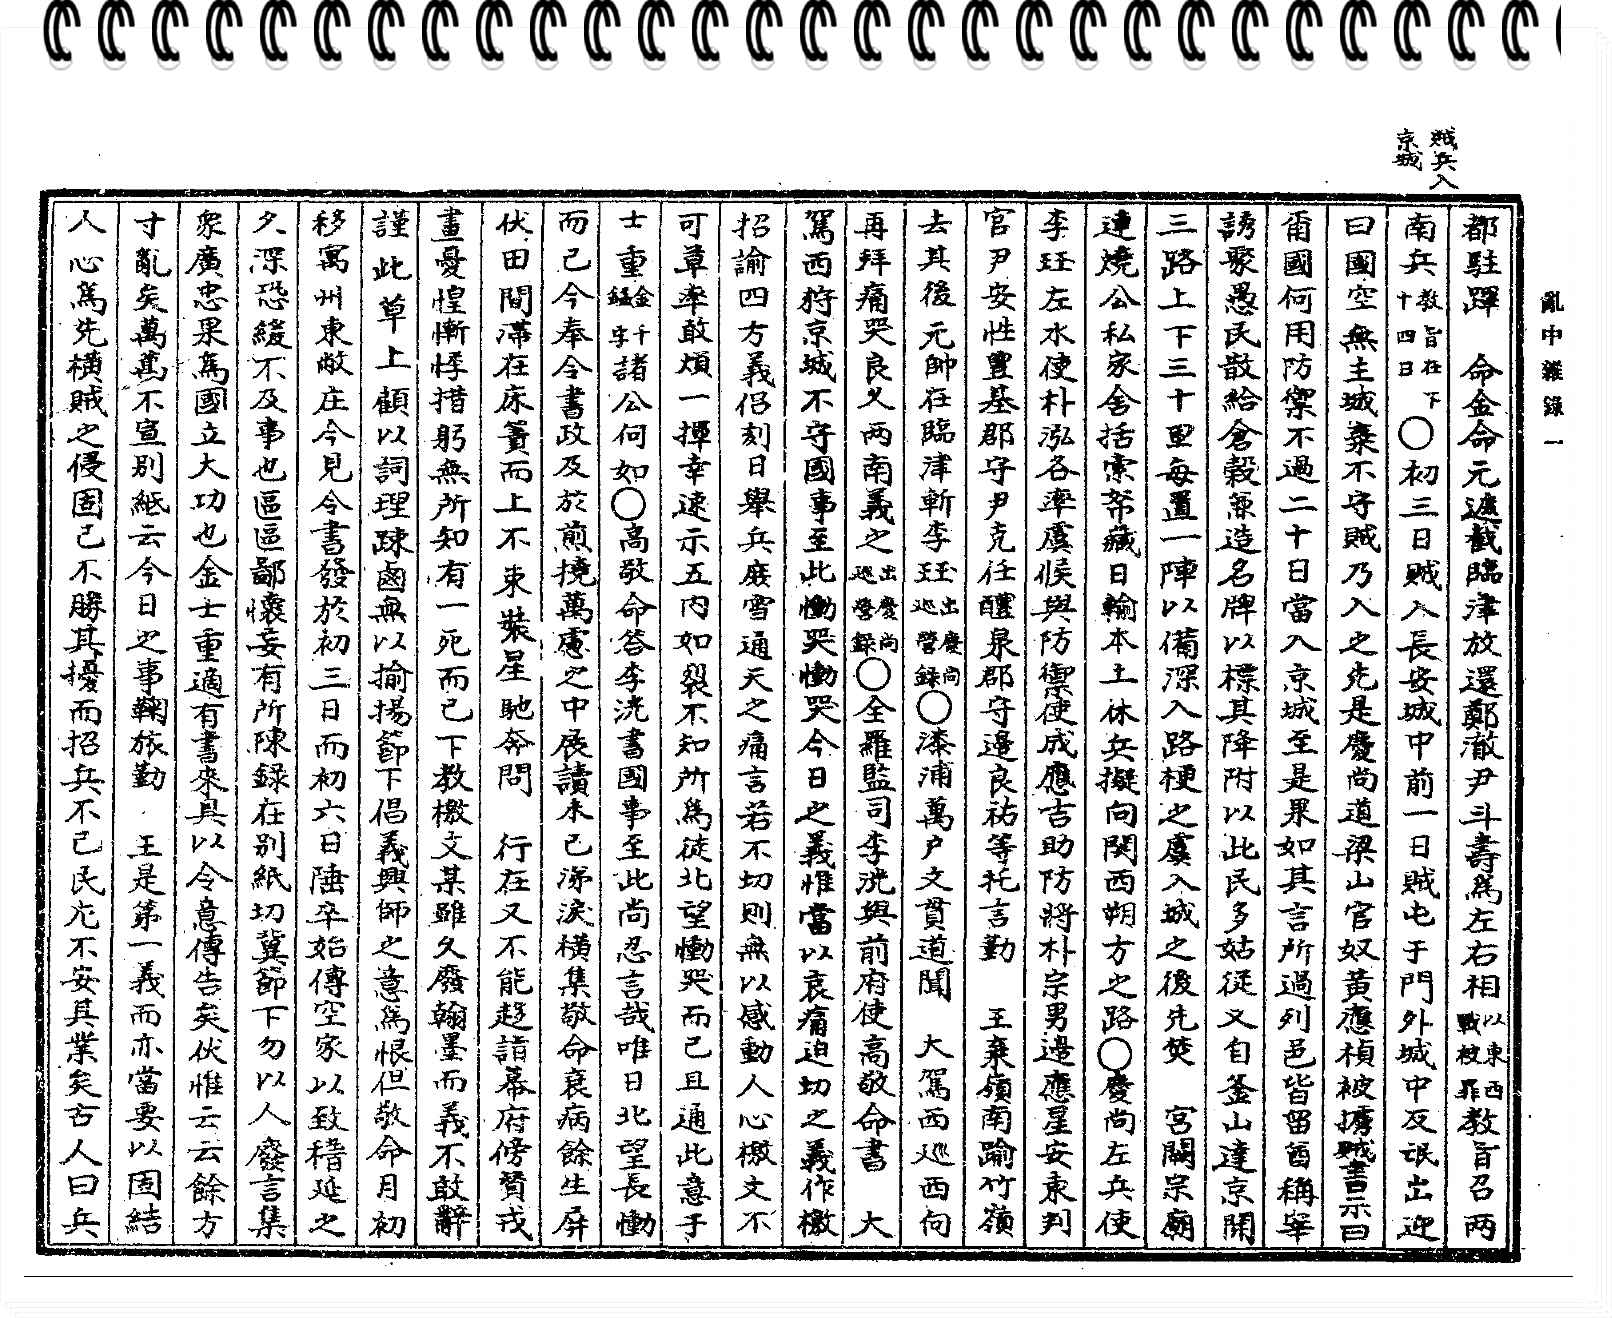 亂中雜錄一
賊兵入
京城
都駐蹕　命金命元遮截臨津放還鄭澈尹斗壽爲左右相以東西戰被罪教旨召兩
南兵教旨在下十四日〇初三日賊入長安城中前一日賊屯于門外城中及氓出迎
曰國空無主城棄不守賊乃入之先是慶尚道梁山官奴黃應楨被擄賊書示曰
爾國何用防禦不過二十日當入京城至是果如其言所過列邑皆留酋稱擧
誘聚愚民散給倉穀兼造名牌以標其降附以此民多姑從又自釜山達京開
三路上下三十里每置一陣以備深入路梗之虞入城之後先焚　宮闕宗廟
連燒公私家舍括索帑藏日輸本土休兵擬向関西朔方之路〇慶尚左兵使
李珏左水使朴泓各率虞候與防禦使成應吉助防將朴宗男邊應星安東判
官尹安性豊基郡守尹克任醴泉郡守邊良祐等托言勤　王棄嶺南踰竹嶺
去其後元帥在臨津斬李珏出慶尚巡營録〇漆浦萬戶文貫道聞　大駕西巡西向
再拜痛哭良久两南義之出慶尚巡營録〇全羅監司李洸與前府使高敬命書　大
駕西狩京城不守國事至此慟哭慟哭今日之義惟當以哀痛迫切之義作檄
招諭四方義侶刻日舉兵庶雪通天之痛言若不切則無以感動人心檄文不
可草率敢煩一揮幸速示五内如裂不知所爲徒北望慟哭而已且通此意于
士重金千鎰字諸公何如〇高敬命答李洸書國事至此尚忍言哉唯日北望長慟
而已今奉令書政及於煎撓萬慮之中展讀未已涕淚橫集敬命衰病餘生屏
伏田間滯在床簀而上不束裝星馳奔問　行在又不能趍詣幕府傍贊戎
畫憂惶慚悸措躬無所知有一死而已下教檄文某雖久廢翰墨而義不敢辭
謹此草上顧以詞理踈鹵無以揄揚節下倡義興師之意爲恨但敬命月初
移寓州東敝庄今見令書發於初三日而初六日陲卒始傳空家以致稽延之
久深恐緩不及事也區區鄙懷妄有所陳録在别紙切冀節下勿以人廢言集
衆廣忠果爲國立大功也金士重適有書來具以令意傳告矣伏惟云云餘方
寸亂矣萬萬不宣别紙云今日之事鞠旅勤　王是第一義而亦當要以固結
人心爲先橫賊之侵固已不勝其擾而招兵不已民尤不安其業矣古人曰兵